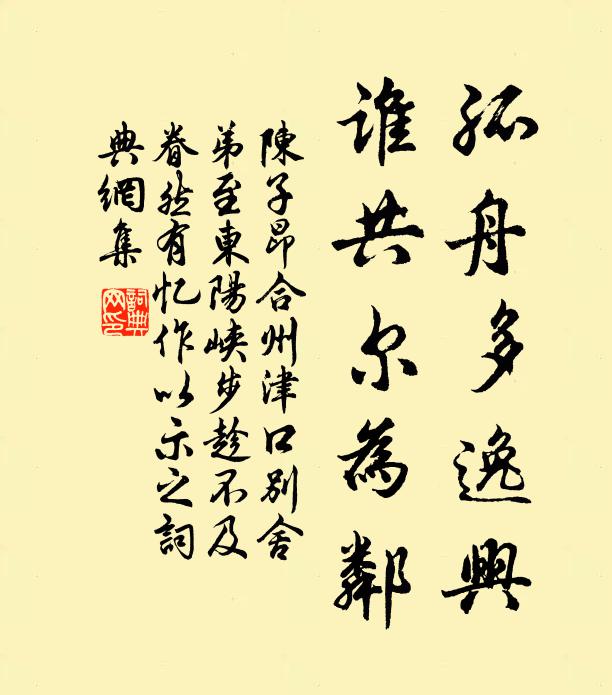 孤舟多逸興
誰共尔為鄰
陳子昂合州津口別舍
弟至東陽峽步趁不及
眷然有忆作以示之詞
典網集
詞典
网印